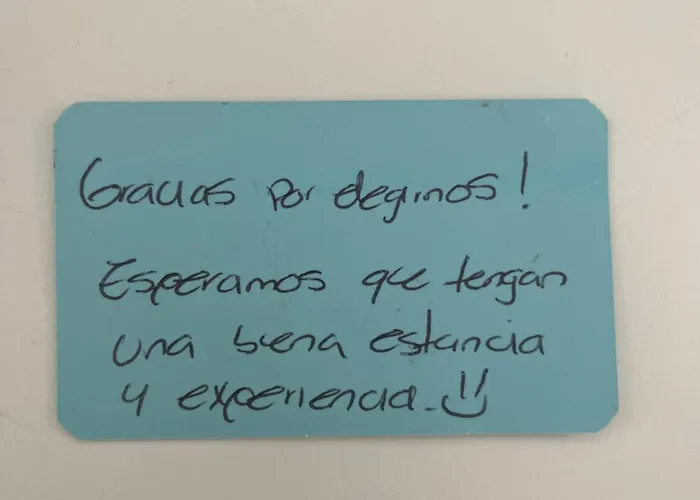 Gracias por elegirnos!
Esperamos que tengan
una buena estancia
y experiencia. :)